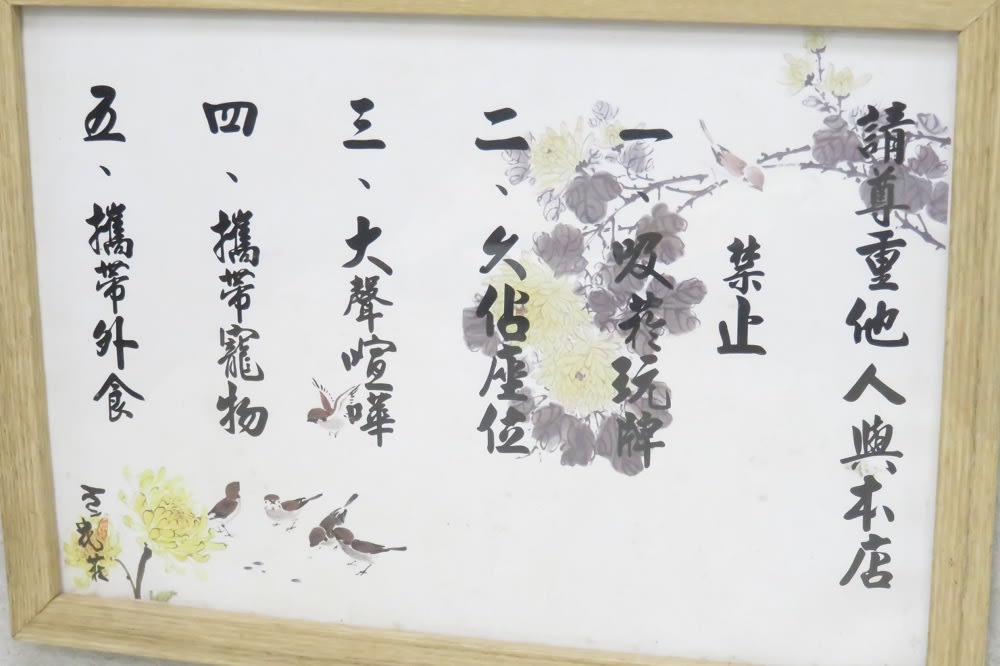 請尊重他人與本店
禁止
一、吸菸玩牌
二、久佔座位
三、大聲喧嘩
四、攜帶寵物
五、攜帶外食